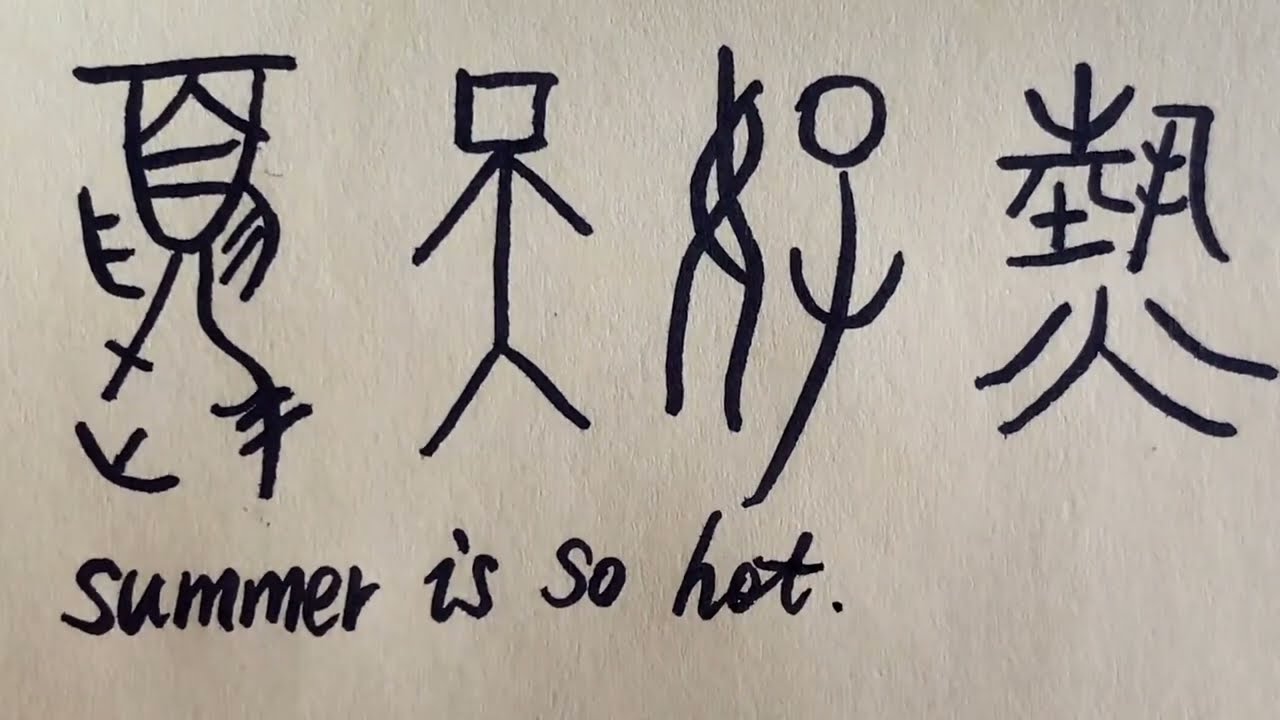 夏天好熱
summer is so hot.